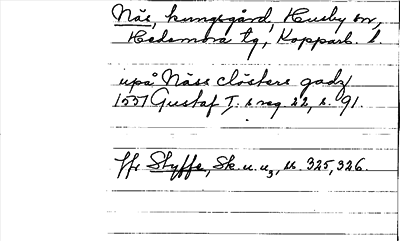 Näs, kungsgård, Husby sn,
Hedemora tg, Kopparb. l.
upå Näss closters gadz
1537 Gustaf I:s reg 22, s. 91.
Jfr Styffe, Sk. u. u3, s. 325, 326.